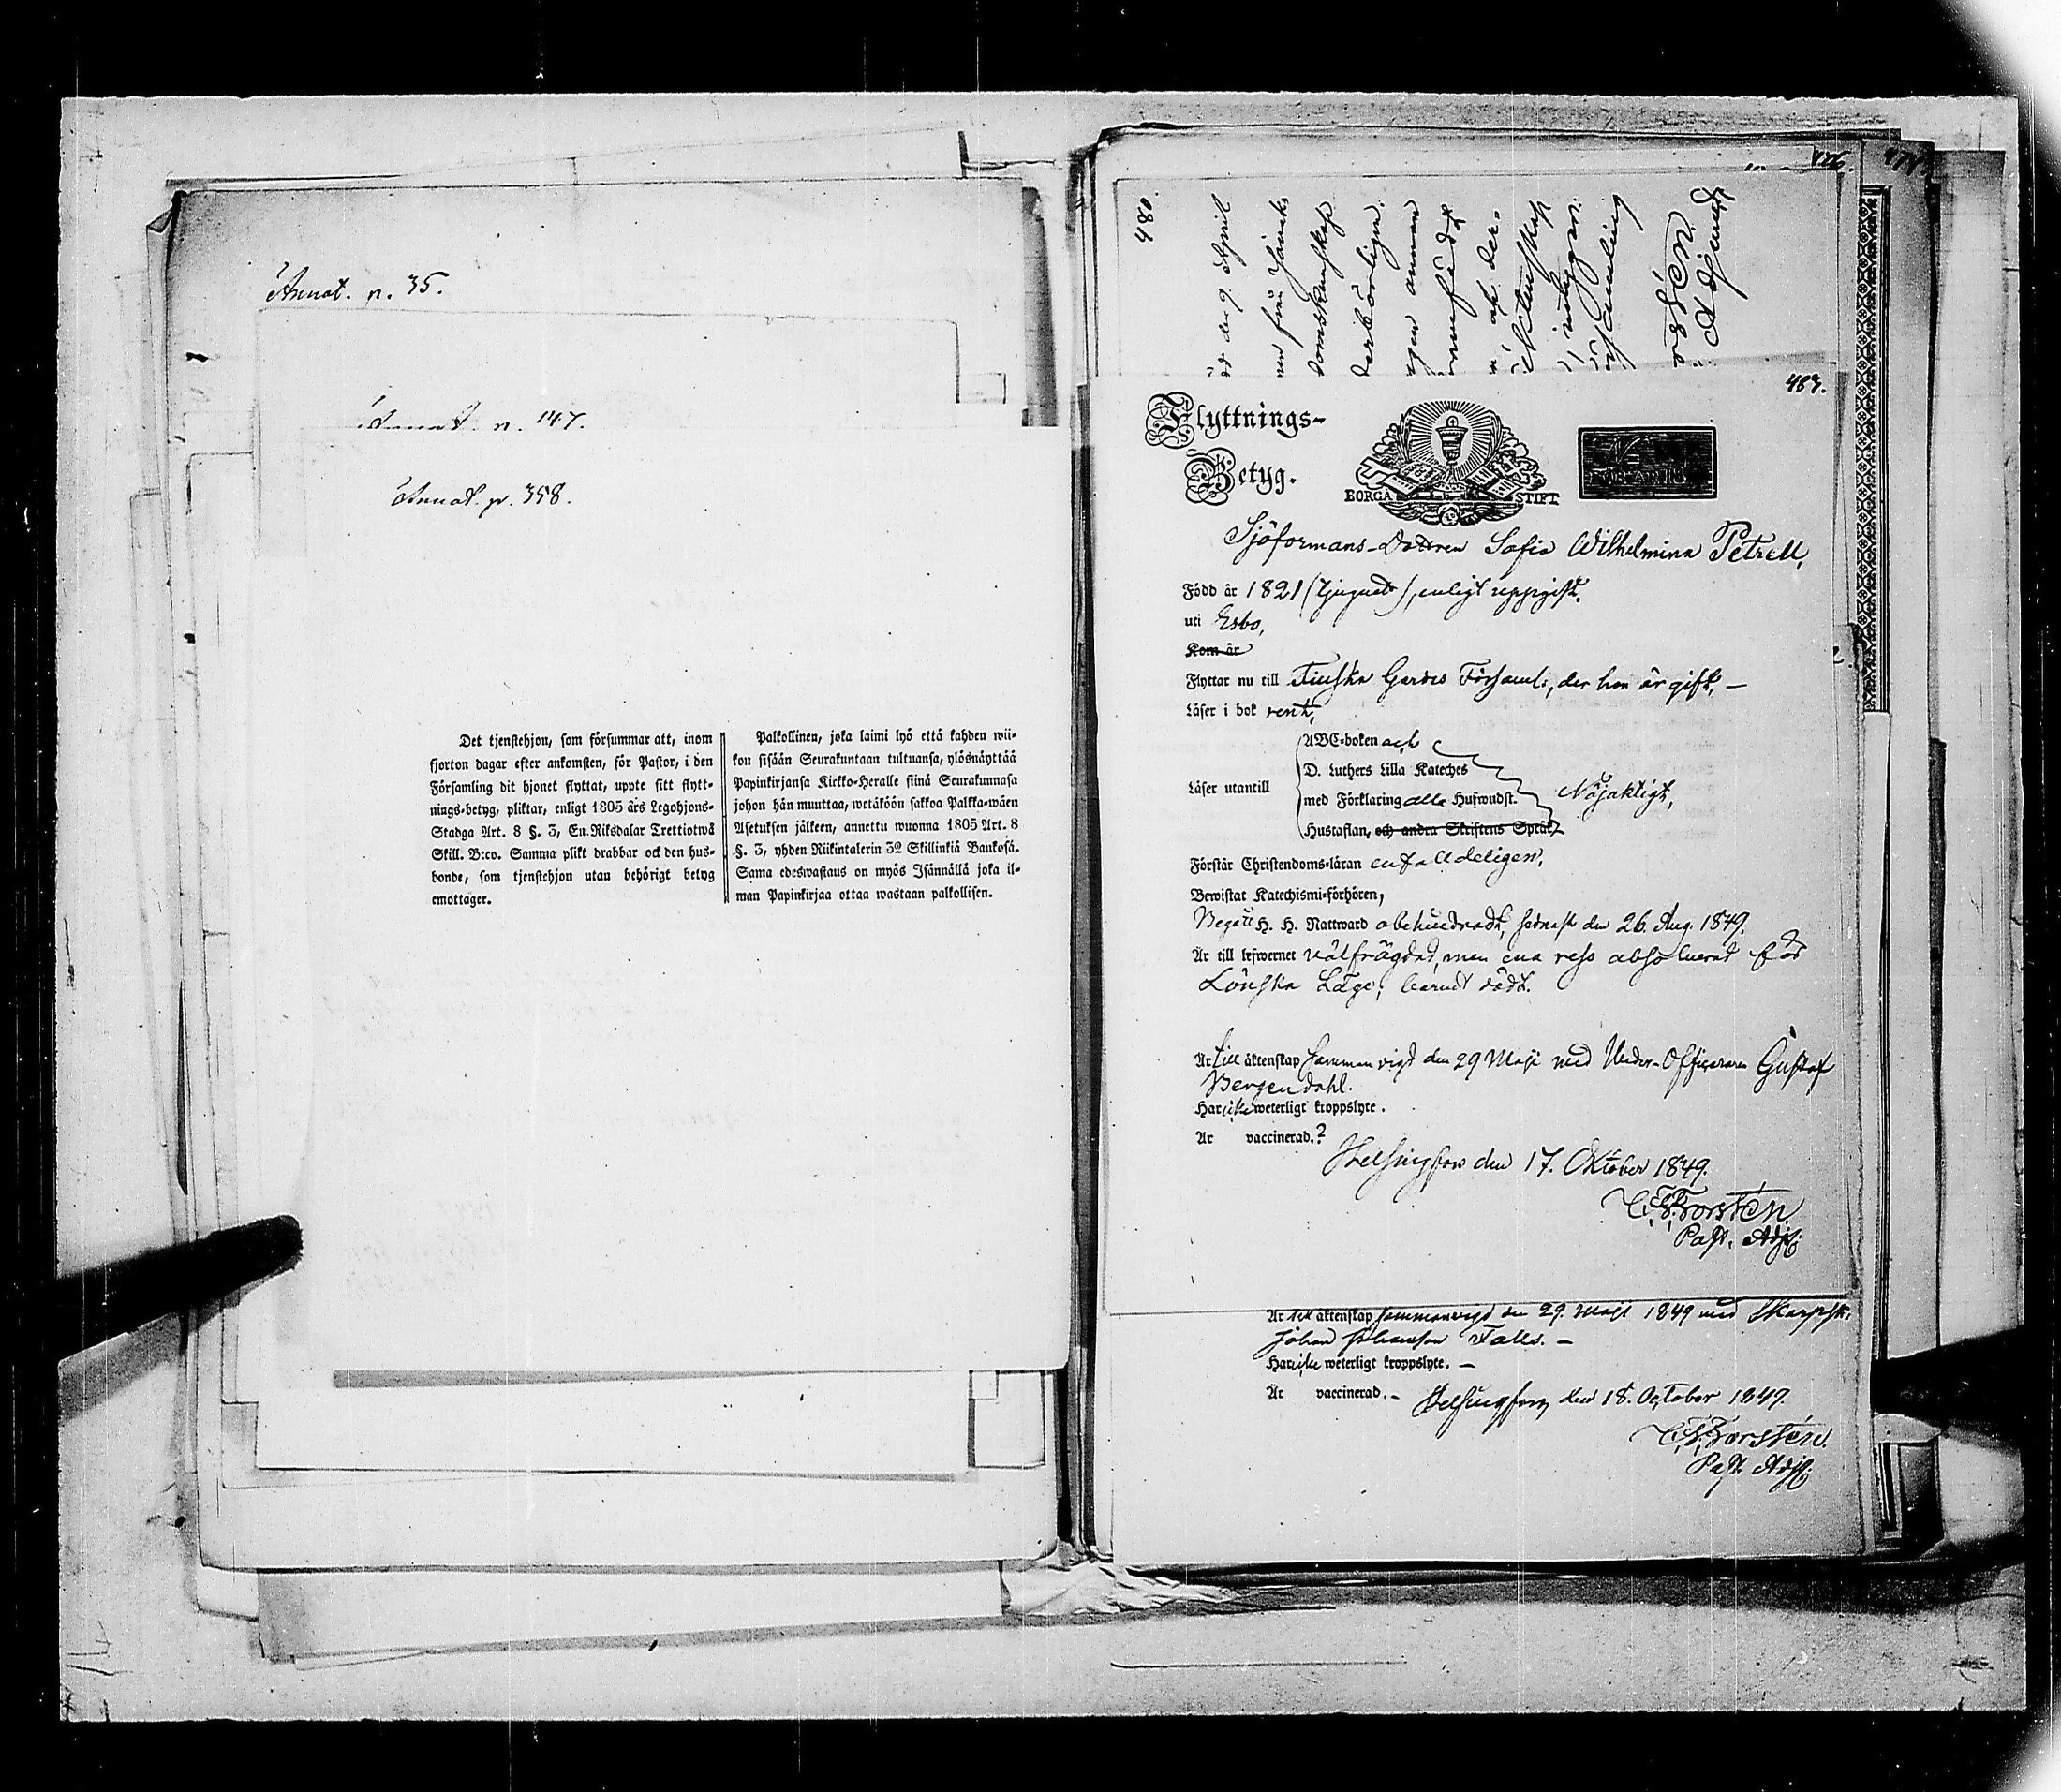 Annot. p. 35.
Annot. p. 147.
Annot. p. 358.
Det tjenstehjon, som försummar att, inom
fjorton dagar efter ankomsten, för Pastor, i den
Församling dit hjonet flyttat, uppte sitt flytt-
nings-betyg, pliktar, enligt 1805 års Legohjons-
Stadga Art. 8 §. 3, En Riksdalar Trettiotwå
Skill. B:co. Samma plikt drabbar ock den hus-
bonde, som tjenstehjon utan behörigt betyg
emottager.
Palkollinen, joka laimi lyö että kahden wii-
kon sisään Seurakuntaan tultuansa, ylösnäyttää
Papinkirjansa Kirkko-Heralle siinä Seurakunnasa
johon hän muuttaa, wetäköön sakkoa Palkka-wäen
Asetuksen jälkeen, annettu wuonna 1805 Art. 8
§. 3, yhden Riikintalerin 32 Skillinkiä Bankosa.
Sama edeswastaus on myös Isännällä joka il-
man Papinkirjaa ottaa wastaan palkollisen.
480.
den 9. April
domskunskap
annan
der-
Adjunct
483.
Flyttnings-
Betyg.
BORGÅ STIFT
Sjöformans-Dottren Sofia Wilhelmina Petrell,
Född år 1821 (tjuguett), enligt uppgift.
uti Esbo,
Kom år
Flyttar nu till Finska Gardes Församl:, der hon är gift, —
Läser i bok rent,
Läser utantill
ABC-boken och
D. Luthers Lilla Kateches
med Förklaring alla Hufwudst.
Hustaflan, och andra Skriftens Språk
Nöjaktigt,
Förstår Christendoms-läran enfalldeligen,
Bewistat Katechismi-förhören,
Begått H. H. Nattward obehindradt, sednast den 26. Aug. 1849.
Är till lefwernet välfrägdad, men ena reso absolverad för
Lönska Läge; barnet dödt.
Är till äktenskap sammanvigd den 29 Maji med Under-Officeraren Gustaf
Bergendahl.
Har icke weterligt kroppslyte.
Är vaccinerad.?
Helsingfors den 17. Oktober 1849.
Forstén.
Past. Adj:
Är till äktenskap sammanvigd den 29. Maji 1849 med Skarpsk.
Johan Johansson Falls. —
Har icke weterligt kroppslyte. —
Är vaccinerad. – Helsingfors den 18. October 1849.
Forstén.
Past. Adj: